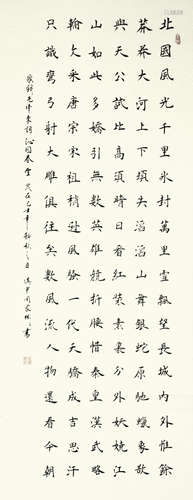 北國風光千里冰封萬里雪飄望長城内外惟餘
莽莽大河上下頓失滔滔山舞銀蛇原馳蠟象欲
與天公試比高須晴日看紅裝素裹分外妖嬈江
山如此多嬌引無數英雄競折腰惜秦皇漢武略
輸文采唐宗宋祖稍遜風騷一代天驕成吉思汗
只識彎弓射大雕俱往矣數風流人物還看今朝
錄毛澤東詞沁園春雪 歲在己丑年